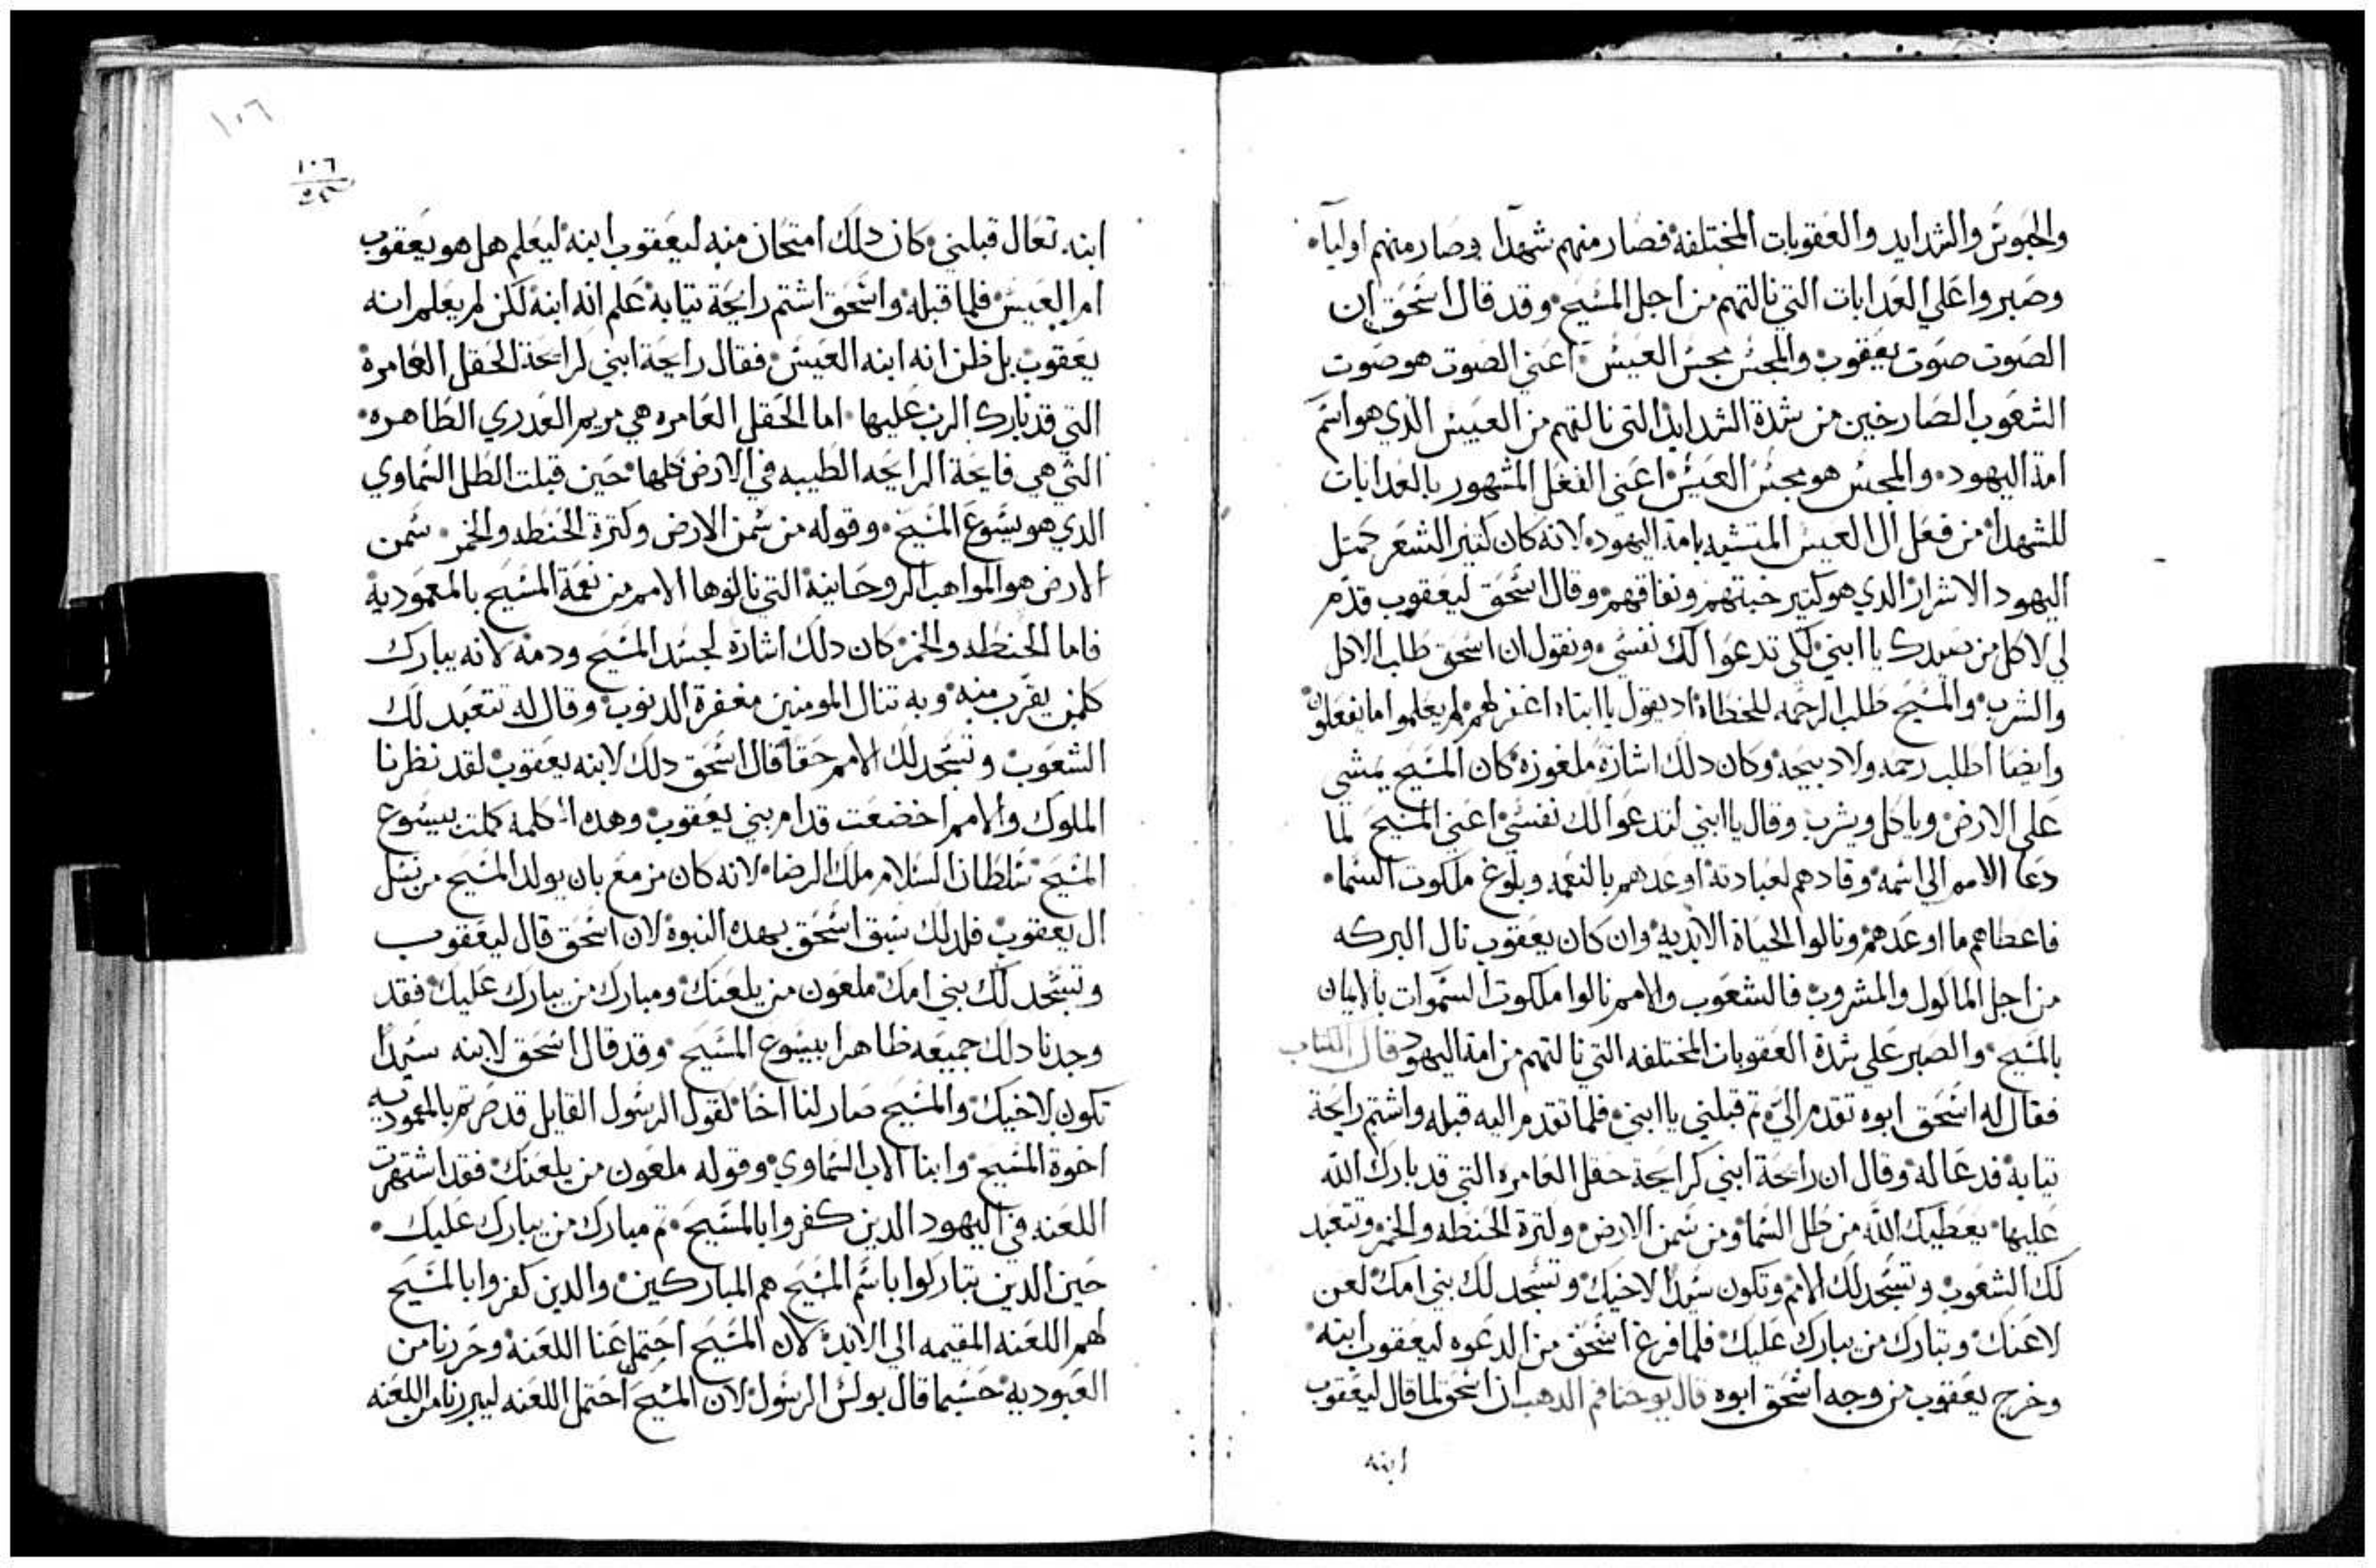 والحبوس والشدايد والعقوبات المختلفه فصار منهم شهدا وصار منهم اوليا
وصبروا علي العدابات التي نالتهم من اجل المسيح وقد قال اسحق ان
الصوت صوت يعقوب والمجس مجس العيس اعني الصوت هو صوت
الشعوب الصارخين من شدة الشدايد التي نالتهم من العيس الدي هو اسم
امة اليهود والمجس هو مجس العيس اعني الفعل المشهور بالعدابات
للشهدا من فعل ال العيس المتشبه بامة اليهود لانه كان كتير الشعر كمتل
اليهود الاشرار الدي هو كتير خبتهم ونفاقهم وقال اسحق ليعقوب قدم
لي لاكل من صيدك يا ابني لكي تدعوا لك نفسي ونقول ان اسحق طلب الاكل
والشرب والمسيح طلب الرحمه للخطاة اد يقول يا ابتاه اغفر لهم لم يعلموا ما يفعلون
وايضا اطلب رحمه ولا دبيحه وكان دلك اشارة ملغوزة كان المسيح يمشي
علي الارض وياكل ويشرب وقال يا ابني لتدعوا لك نفسي اعني المسيح لما
دعا الامم الي اسمه وقادهم لعبادته اوعدهم بالنعمه وبلوغ ملكوت السما
فاعطاهم ما اوعدهم ونالوا الحياة الابديه وان كان يعقوب نال البركه
من اجل الماكول والمشروب فالشعوب والامم نالوا ملكوت السموات بالايمان
بالمسيح والصبر علي شدة العقوبات المختلفه التي نالتهم من امة اليهود قال الكتاب
فقال له اسحق ابوه تقدم الي تم قبلني يا ابني فلما تقدم اليه قبله واشتم رايحة
تيابه فدعا له وقال ان رايحة ابني كرايحة حقل العامره التي قد بارك الله
عليها يعطيك الله من طل السما ومن سمن الارض وكترة الحنطه والخمر وتتعبد
لك الشعوب وتسجد لك الامم وتكون سيدا لاخيك وتسجد لك بني امك لعن
لاعنك وبتبارك من يبارك عليك فلما فرغ اسحق من الدعوه ليعقوب ابنه
وخرج يعقوب من وجه اسحق ابوه قال يوحنا فم الدهب ان اسحق لما قال ليعقوب
ابنه
١٠٦
١٠٦
ابنه تعال قبلني كان دلك امتحان منه ليعقوب ابنه ليعلم هل هو يعقوب
ام العيس فلما قبله واسحق اشتم رايحة تيابه علم انه ابنه لكن لم يعلم انه
يعقوب بل ظن انه ابنه العيس فقال رايحة ابني كرايحة الحقل العامره
التي قد بارك الرب عليها اما الحقل العامره هي مريم العدري الطاهره
التي هي فايحة الرايحه الطيبه في الارض كلها حين قبلت الطل السماوي
الدي هو يسوع المسيح وقوله من سمن الارض وكترة الحنطه والخمر سمن
الارض هو المواهب الروحانية التي نالوها الامم من نعمة المسيح بالمعمودية
فاما الحنطه والخمر كان دلك اشارة لجسد المسيح ودمه لانه يبارك
كلمن يقرب منه وبه تنال المومنين مغفرة الدنوب وقال له تتعبد لك
الشعوب وتسجد لك الامم حقا قال اسحق دلك لابنه يعقوب لقد نظرنا
الملوك والامم اخضعت قدام بني يعقوب وهده الكلمة كملت بيسوع
المسيح سلطان السلام ملك الرضا لانه كان مزمع بان يولد المسيح من نسل
ال يعقوب فلدلك سبق اسحق بهده النبوة لان اسحق قال ليعقوب
وتسجد لك بني امك ملعون من يلعنك ومبارك من يبارك عليك فقد
وجدنا دلك جميعه ظاهرا بيسوع المسيح وقد قال اسحق لابنه سيدا
تكون لاخيك والمسيح صار لنا اخا لقول الرسول القايل قد صرتم بالمعموديه
اخوة المسيح وابنا الاب السماوي وقوله ملعون من يلعنك فقد اشتهرت
اللعنه في اليهود الدين كفروا بالمسيح تم مبارك من يبارك عليك
حين الدين يتباركوا باسم المسيح هم المباركين والدين كفروا بالمسيح
لهم اللعنه المقيمه الي الابد لان المسيح احتمل عنا اللعنة وحررنا من
العبوديه حسبما قال بولس الرسول لان المسيح احتمل اللعنه ليبررنا من اللعنه